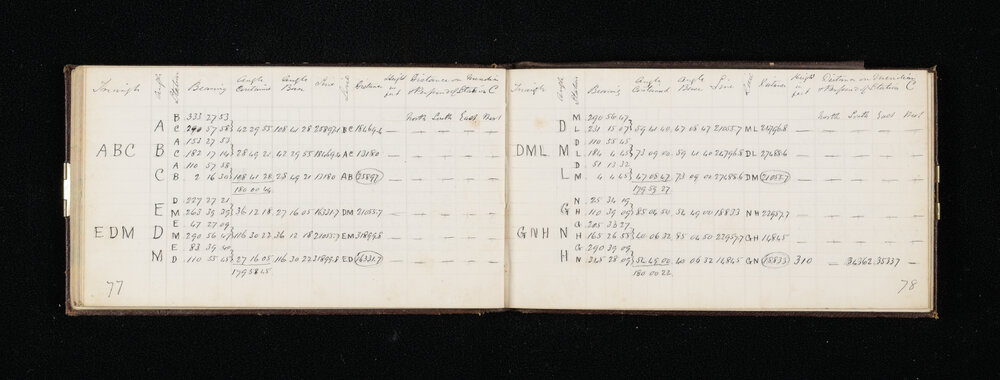 Triangle Angle Station Bearing Angle Contained Angle Base Line Distance Height in feet Distance on Meridian & Perpend of Station C
North South East West
B 333 27 53
A C 290 57 58 42 29 55 108 41 28 25897.1 BC 18469.4 — — — — —
A 153 27 53
ABC B C 182 17 14 28 49 21 42 29 55 18469.4 AC 13180 — — — — —
A 110 57 58
C B 2 16 30 108 41 28 28 49 21 13180 AB 25897 — — — — —
180 00 44
D 227 27 21
E M 263 39 39 36 12 18 27 16 05 16331.7 DM 21055.7 — — — — —
E 47 27 09
EDM D M 290 56 47 116 30 22 36 12 18 21055.7 EM 31899.8 — — — — —
E 83 39 40
M D 110 55 45 27 16 05 116 30 22 31899.8 ED 16331.7 — — — — —
179 58 45
77
Triangle Angle Station Bearing Angle Contained Angle Base Line Distance Height in feet Distance on Meridian & Perpend of Station C
North South East West
M 290 56 47
D L 231 15 07 59 41 40 47 08 47 21055.7 ML 24796.8 — — — — —
D 110 55 45
DML M L 184 4 45 73 09 00 59 41 40 24796.8 DL 27488.6 — — — — —
D 51 13 32
L M 4 4 45 47 08 47 73 09 00 27488.6 DM 21055.7 — — — — —
179 59 27
N 25 34 19
G H 110 39 09 85 04 50 54 49 00 18833 NH 22957.7 — — — — —
G 205 33 27
GNH N H 165 26 55 40 06 32 85 04 50 22957.7 GH 14845 — — — — —
G 290 39 09
H N 345 28 09 54 49 00 40 06 32 14845 GN 18833 310 — 34362 35337 —
180 00 22
78